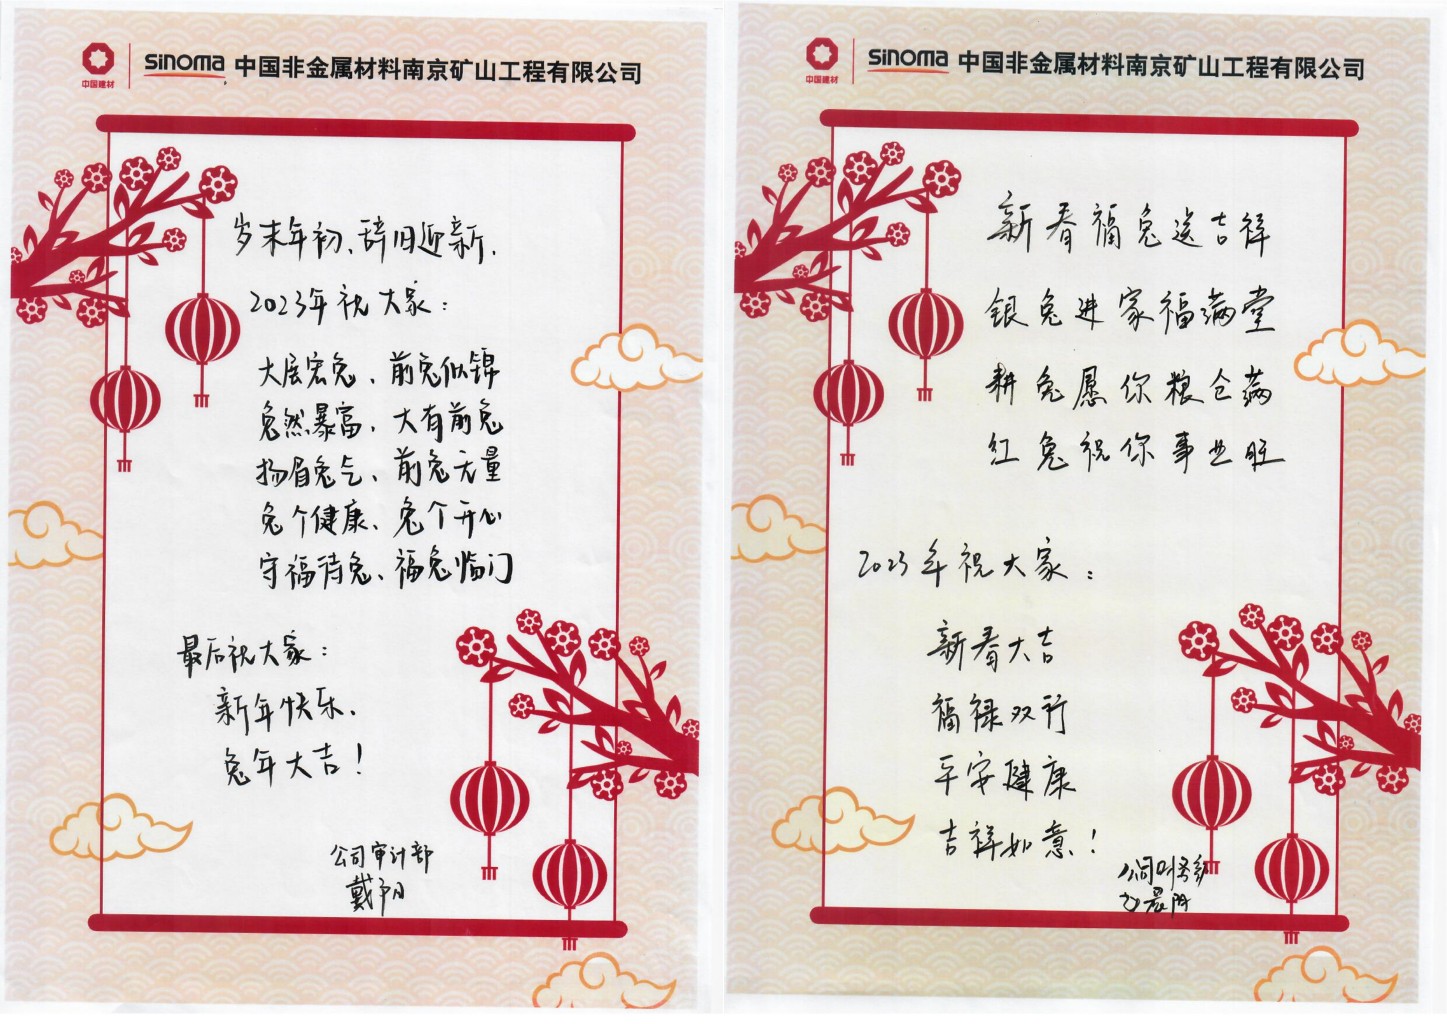 中国建材
sinoma 中国非金属材料南京矿山工程有限公司
岁末年初、辞旧迎新.
2023年祝大家：
大展宏兔、前兔似锦
兔然暴富、大有前兔
扬眉兔气、前兔无量
兔个健康、兔个开心
守福待兔、福兔临门
最后祝大家：
新年快乐.
兔年大吉！
公司审计部
戴阳
中国建材
sinoma 中国非金属材料南京矿山工程有限公司
新春福兔送吉祥
银兔进家福满堂
耕兔愿你粮仓满
红兔祝你事业旺
2023年祝大家：
新春大吉
福禄双行
平安健康
吉祥如意！
公司财务部